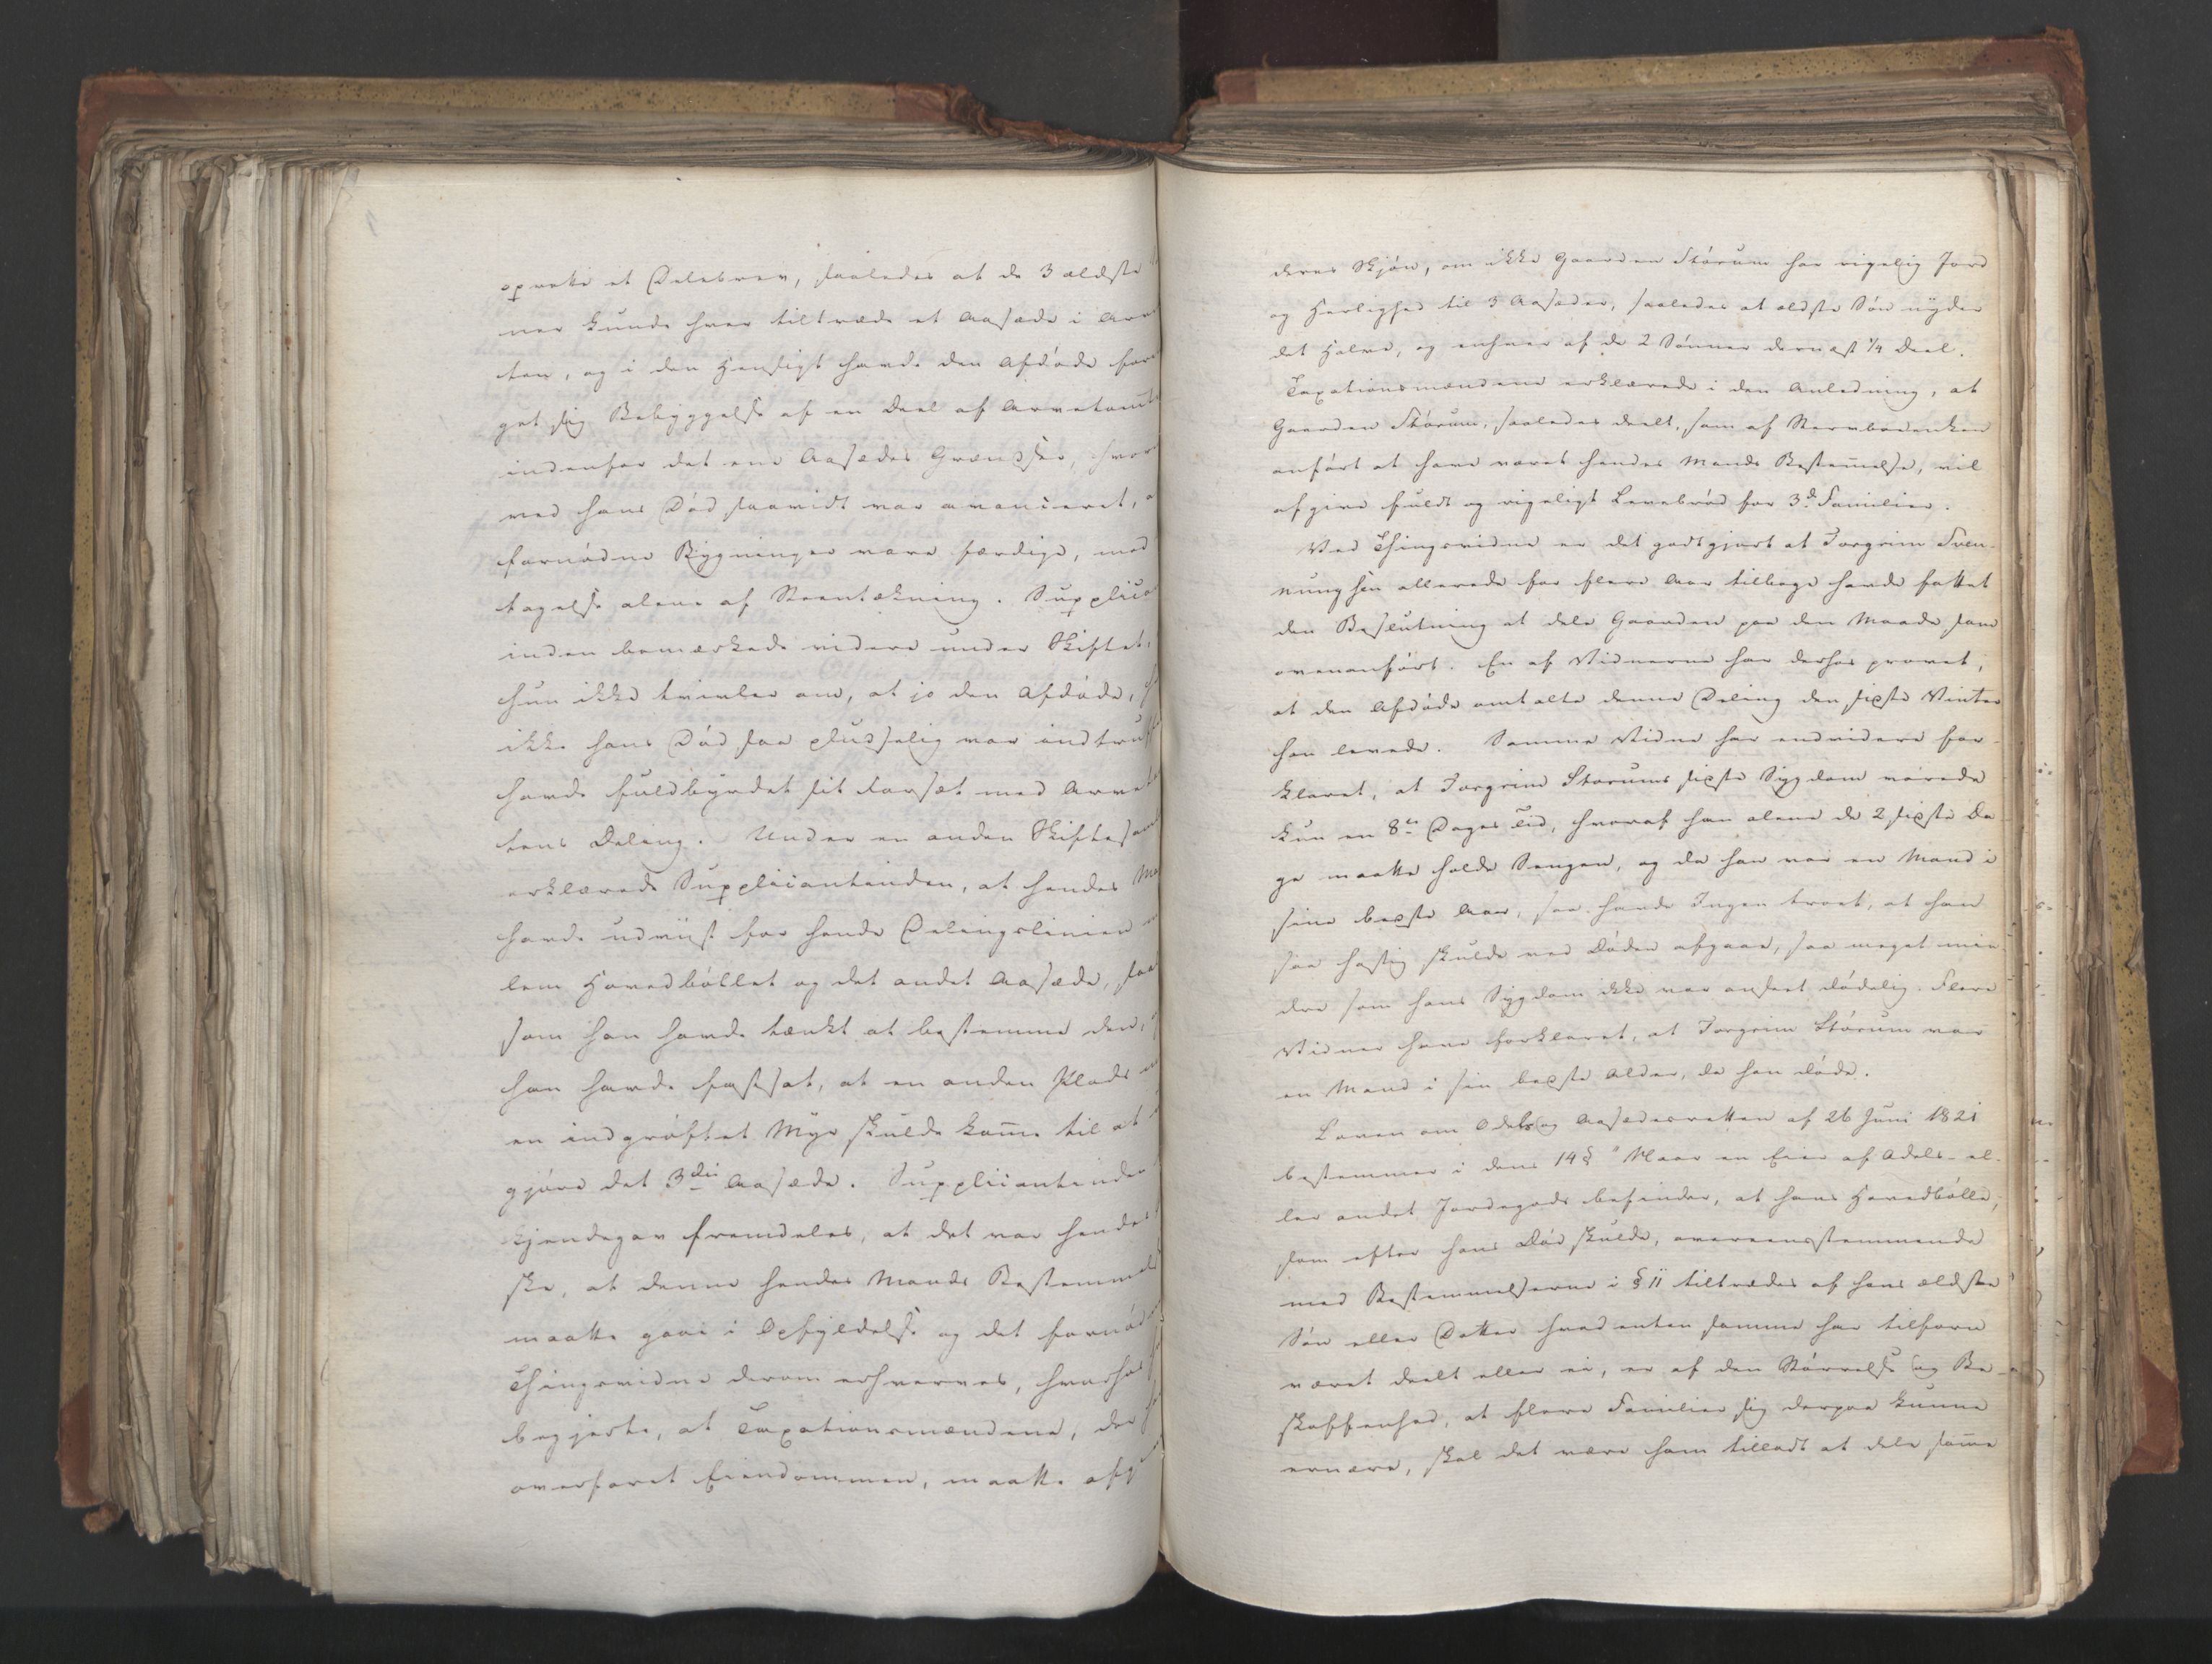 oprette et Delebrev, saaledes at de 3 ældste
ner kunde hver tiltræde et Aasæde i Arv
ten, og i den Hensigt havde den Afdøde fore
get sig Bebyggelse af en Deel af Arvetomt
indenfor det ene Aasædes Grændser, hvor
ved hans Død saavidt var avanceret, a
fornødne Bygninger vare færdige, med
tagelse alene af Steentækning. Supplica
inden bemærkede videre under Skiftet,
hun ikke tvivler om, at jo den Afdøde,
ikke hans Død saa pludselig var indtruf
havde fuldbyrdet sit Forsæt med Arvet
tens Deling. Under en anden Skiftesam
erklærede Supplicantinden, at hendes Ma
havde udviist for hende Delingslinien
lem Hovedbøllet og det andet Aasæde, saa
som han havde tænkt at bestemme den,
han havde fastsat, at en anden Plads
en indgrøftet Myr skulde kom̅e til at
gjøre det 3die Aasæde. Supplicantinden
kjendegav fremdeles, at det var hendes
ske, at denne hendes Mands Bestemmel
maatte gaae i Opfyldelse og det fornød
Thingsvidne derom erhverves, hvorhos
begjerte, at Taxationsmændene, der
overfaret Eiendommen, maatte afg
deres Skjøn, om ikke Gaarden Storum har rigelig Jord
og Herlighed til 3 Aasæder, saaledes at ældste Søn nyder
det Halve, og enhver af de 2 Sønner dernæst ¼ Deel.
Taxationsmændene erklærede i den Anledning, at
Gaarden Storum, saaledes deelt, som af Stervboeenken
anført at have været hendes Mands Bestem̅else, vil
afgive fuldt og rigeligt Levebrød for 3de Familier.
Ved Thingsvidne er det godtgjort at Torgrim Sven-
nungsen allerede for flere Aar tilbage havde fattet
den Beslutning at dele Gaarden paa den Maade som
ovenanført. En af Vidnerne har derhos provet,
at den Afdøde omtalte denne Deling den sidste Vinter
han levede. Samme Vidne har endvidere for-
klaret, at Torgrim Storums sidste Sygdom varede
kun en 8te Dages Tid, hvoraf han alene de 2 sidste Da-
ge maatte holde Sengen, og da han var en Mand i
sine bedste Aar, saa havde Ingen troet, at han
saa hastig skulde ved Døden afgaae, saa meget min-
dre som hans Sygdom ikke var anseet dødelig. Flere
Vidner have forklaret, at Torgrim Storum var
en Mand i sin bedste Alder, da han døde.
Loven om Odels og Aasædesretten af 26 Juni 1821
bestemmer i dens 14 § "Naar en Eier af Odels- el-
ler andet Jordegods befinder, at hans Hovedbølle,
som efter hans Død skulde, overeensstemmende
med Bestemmelserne i § 11 tiltrædes af hans ældste
Søn eller Datter hvad enten samme har tilforn
været deelt eller ei, er af den Størrelse og Be-
skaffenhed, at flere Familier sig derpaa kunne
ernære, skal det være ham tilladt at dele sam̅e